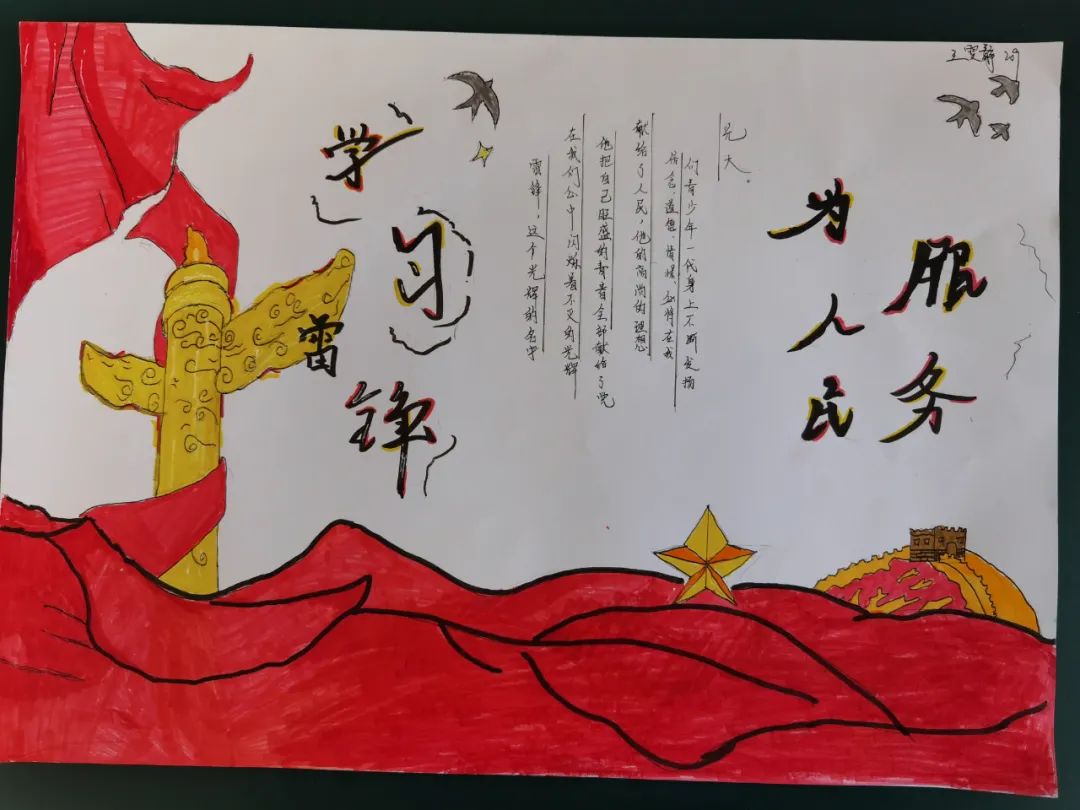 王雯静 209
学
习
雷
锋
雷锋，这个光辉的名字
在我们心中闪烁着不灭的光辉
他把自己旺盛的青春全部献给了党
献给了人民，他的高尚的理想
信念、道德、情操、必将在我
们青少年一代身上不断发扬
光大。
为人民
服务